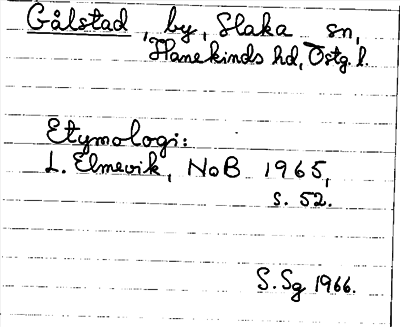 Gålstad, by, Slaka sn,
Hanekinds hd, Östg. l.
Etymologi:
L. Elmevik, NoB 1965,
s. 52.
S. Sg 1966.